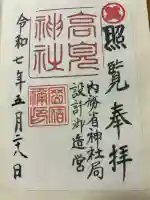 照覧奉拝
内務省神社局
設計御造営
高見神社
令和七年五月二十八日